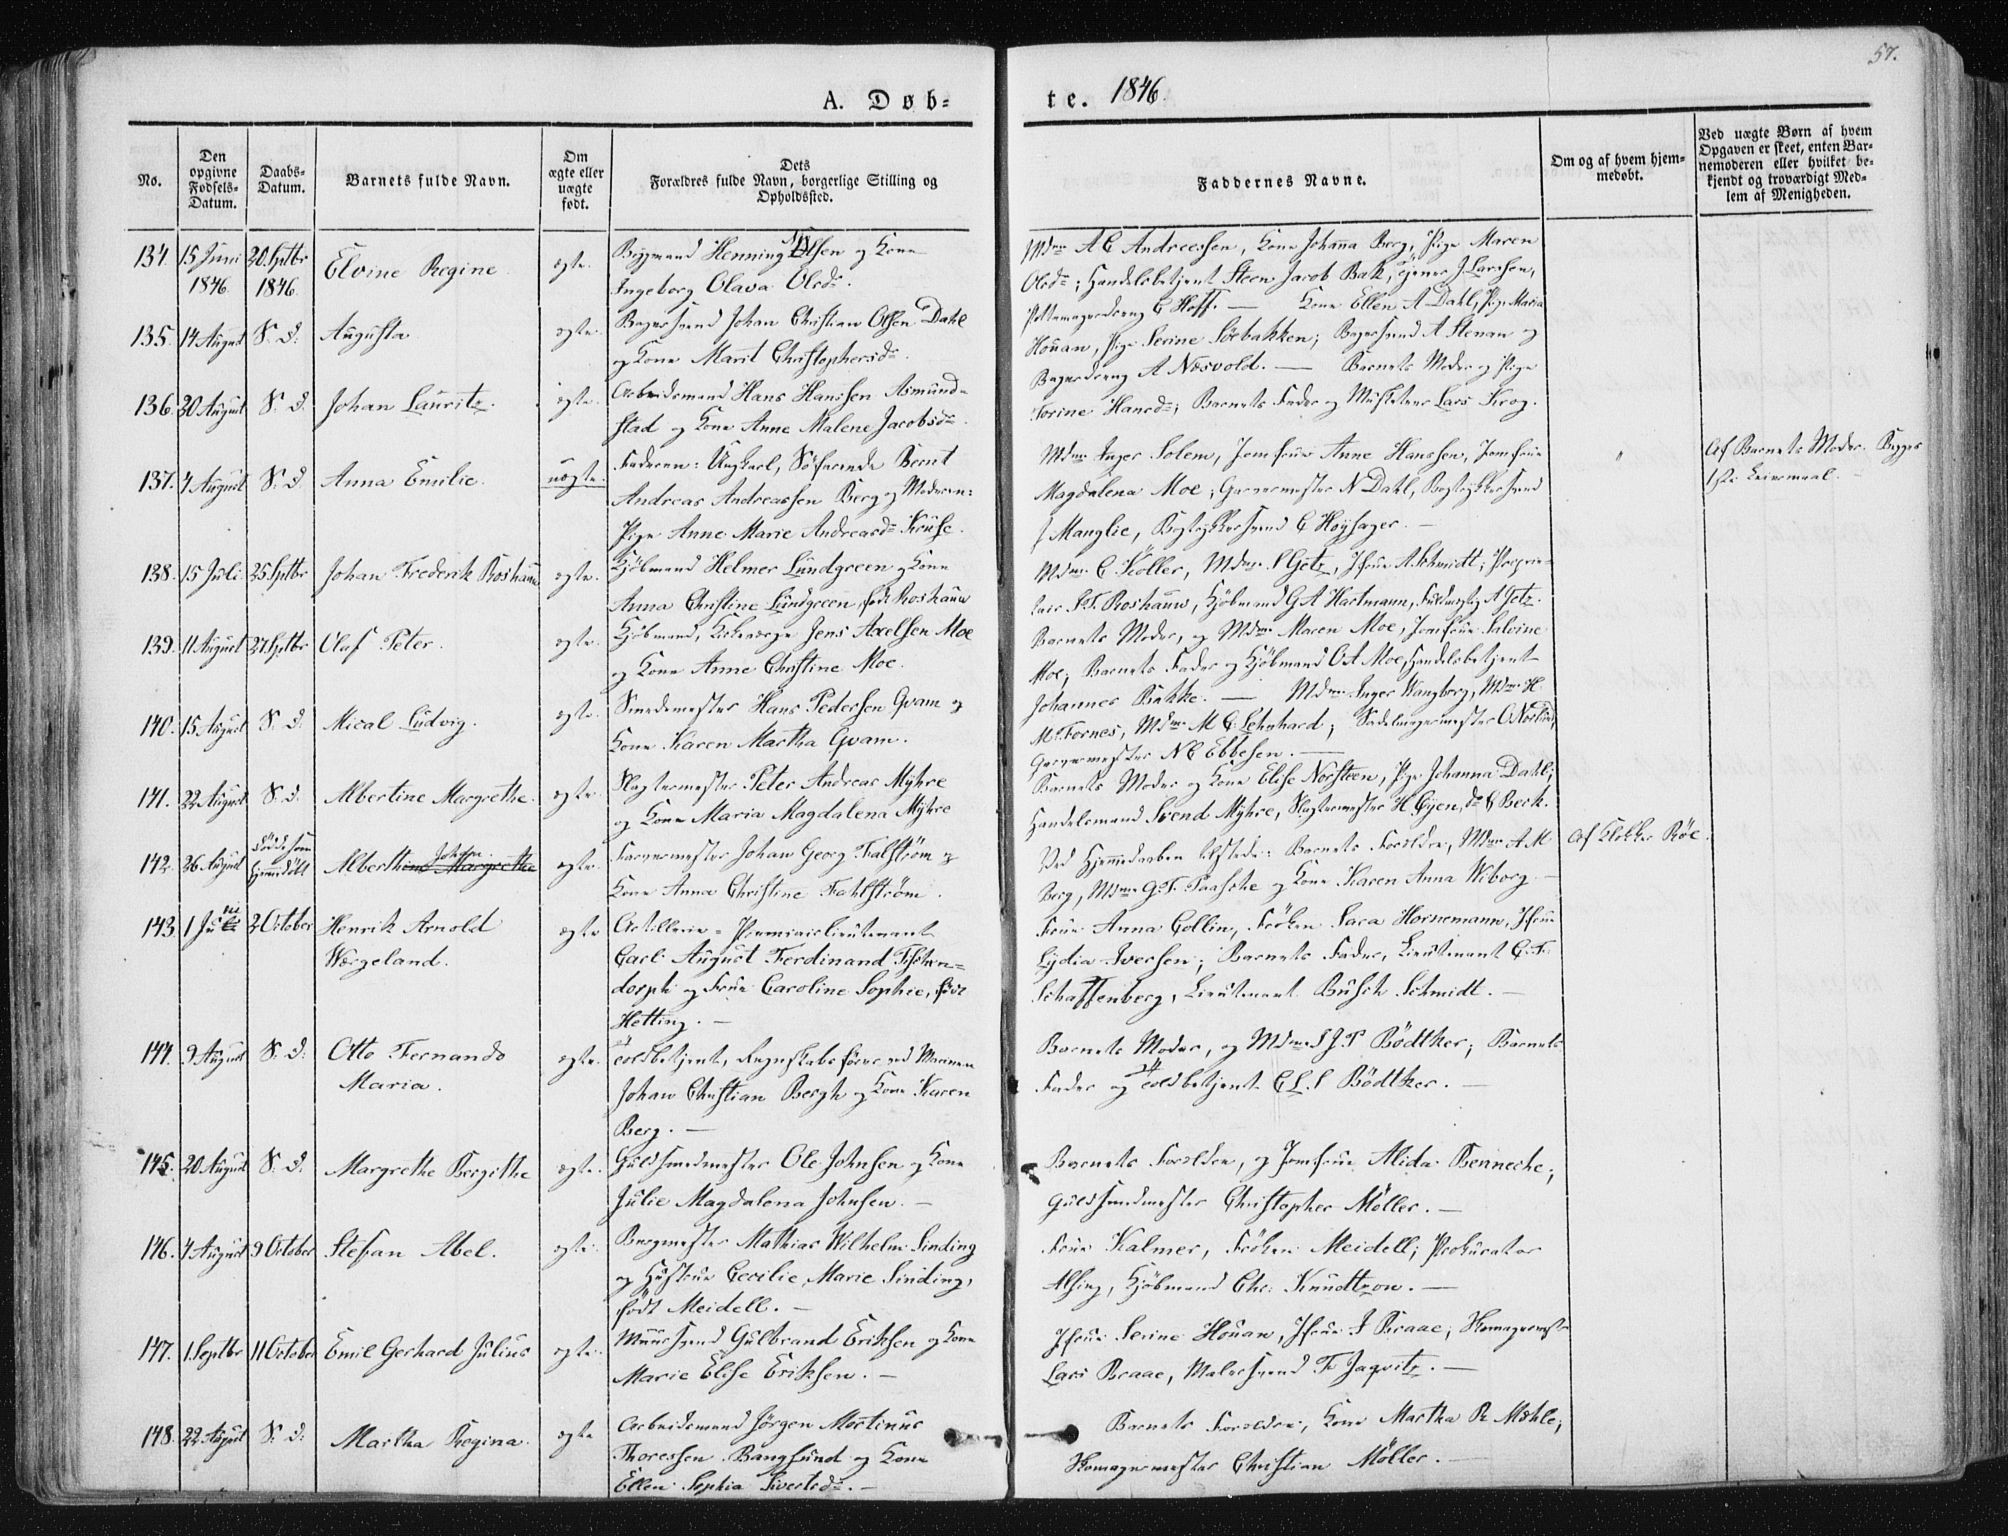 57.
A. Døb-
te. 1846.
No.
Den opgivne Fødsels-Datum.
Daabs-Datum.
Barnets fulde Navn.
Om ægte eller uægte født.
Dets Forældres fulde Navn, borgerlige Stilling og Opholdssted.
Faddernes Navne.
Om og af hvem hjem-
medøbt.
Ved uægte Børn af hvem
Opgaven er skeet, enten Bar-
nemoderen eller hvilket be-
kjendt og troværdigt Med-
lem af Menigheden.
134. 15 Juni 1846 20. Septbr 1846. Elvine Regine ægte.
Bygmand Henning Olsen og Kone
Ingeborg Olava Olsdr.
Mdme A C Andreessen, Kone Johanna Berg, Pige Maren
Olsdr; Handelsbetjent Steen Jacob Bak, Tjener J. Larssen,
Pottemagerdreng C Hoff. —
135. 14 August S. d. Augusta ægte.
Bagersvend Johan Christian Olsen Dahl
og Kone Marit Christophersdr.
Kone Ellen A Dahl, Pige Maria
Houan, Pige Serine Sörbakken; Bagersvend A Stenan og
Bagerdreng A Næsvold. —
136. 30 August S. d. Johan Lauritz. ægte.
Arbeidsmand Hans Hanssen Asmund-
stad og Kone Anne Malene Jacobsdr.
Barnets Moder og Pige
Serine Hansdr; Barnets Fader og Musketeer Lars Krog.
137. 7 August S. d. Anna Emilie. uægte.
Faderen: Ungkarl, Söfarende Bernt
Andreas Andreassen Berg og Moderen:
Pige Anne Marie Andreasdr Kruse.
Mdme Inger Solem, Jomfrue Anne Hanssen, Jomfrue
Magdalena Moe; Garvermester N Dahl, Bogtrykkersvend
J Manglie, Bogtrykkersvend C Høysager. —
Af Barnets Moder. Begges
1ste Leiermaal. —
138. 15 Juli 25 Septbr Johan Frederik Roshauw ægte.
Kjöbmand Helmer Lundgreen og Kone
Anna Christine Lundgreen, född Roshauw
Mdme C Köller, Mdme S Getz, Jfrue A. Schmidt; Proprie-
tair S.F. Roshauw, Kjöbmand G A Hartmann, Fuldmægtig A Getz.
139. 11 August 27. Septbr Olaf Peter. ægte.
Kjöbmand, Jens Axelsen Moe
og Kone Anne Christine Moe.
Barnets Moder, og Mdme Maren Moe, Jomfrue Silvine
Moe; Barnets Fader og Kjöbmand O A Moe, Handelsbetjent
Johannes Bakke. —
140. 15 August S. d. Mical Ludvig. ægte.
Smedemester Hans Pedersen Qvam og
Kone Karen Martha Qvam.
Mdme Inger Wangberg, Mdme H.
M. Fornes, Mdme M C. Lehnhard; Sadelmagermester O Norlid,
Garvermester N C Ebbesen. —
141. 22 August S. d. Albertine Margrethe. ægte
Slagtermester Peter Andreas Myhre
og Kone Maria Magdalena Myhre
Barnets Moder og Kone Elise Norsteen, Pige Johanna Dahl;
Handelsmand Svend Myhre, Slagtermester H Gjien, do C Berk.
142. 26 August Døde som hjemmdöbt Albert Johan ægte.
Farvermester Johan Georg Falström og
Kone Anna Christine Fahlström.
Ved Hjemmedaaben tilstede: Barnets Forældre, Mdme A M
Berg, Mdme G. F. Paasche og Kone Karen Anna Wiborg. —
Af Klokker Röe.
143. 1 Juni 2 October Henrik Arnold
Wergeland. ægte
Artillerie-Premierlieutenant
Carl August Ferdinand Tschen-
dorph og Frue Caroline Sophie, född
Hetting. —
Frue Anna Collin, Fröken Sara Hornemann, Jfrue
Lydia Iversen; Barnets Fader, Lieutenant C. F.
Schaffenberg, Lieutenant Busch Schmidt. —
144. 9 August S. d. Otto Fernando
Maria. ægte.
Toldbetjent, Regnskabsförer ved Marinen
Johan Christian Bergh og Kone Karen
Berg. —
Barnets Moder, og Mdme S J. P Bödtker; Barnets
Fader og Toldbetjent C L. S Bödtker. —
145. 20 August S. d. Margrethe Bergithe ægte.
Guldsmedmester Ole Johnsen og Kone
Julie Magdalena Johnsen. —
Barnets Forældre, og Jomfrue Alida Benneche;
Guldsmedmester Christopher Møller. —
146. 7 August 9 October Stefan Abel. ægte.
Bergmester Mathias Wilhelm Sinding
og Hustrue Cecilie Marie Sinding,
födt Meidell. —
Frue Kalmer, Fröken Meidell; Prokurator
Alsing, Kjöbmand Chr: Knudtzon. —
147. 1. Septbr 11 October Emil Gerhard Julius ægte.
Muursvend Gulbrand Eriksen og Kone
Marie Elise Eriksen. —
Jfrue Serine Houan, Jfrue J Braae; Skomagermester
Lars Braae, Malersvend Fr Jaqvitz. —
148. 22 August S. d. Martha Regina. ægte
Arbeidsmand Jörgen Martinus
Thoressen Bangsund og Kone
Ellen Sophia Sivertsdr. —
Barnets Forældre, Kone Martha R Mæhle;
Skomagermester Christian Møller. —